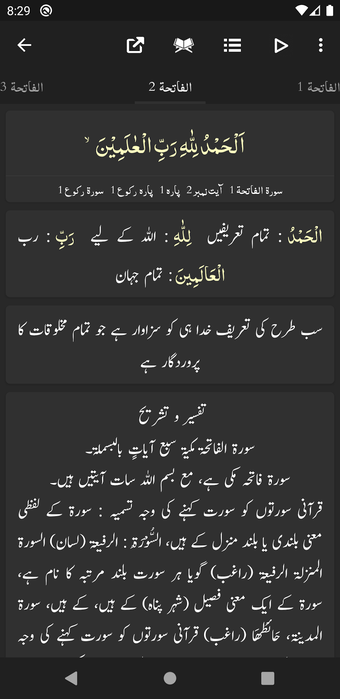 8:29
الفاتحة 3
الفاتحة 2
الفاتحة 1
اَلْحَمْدُ لِلّٰهِ رَبِّ الْعٰلَمِیْنَ ۙ
سورۃ الفاتحة 1 آیت نمبر 2 پارہ 1 پارہ رکوع 1 سورۃ رکوع 1
الْحَمْدُ : تمام تعریفیں لِلّٰهِ : اللہ کے لیے رَبِّ : رب
الْعَالَمِيْنَ : تمام جہان
سب طرح کی تعریف خدا ہی کو سزاوار ہے جو تمام مخلوقات کا
پروردگار ہے
تفسیر و تشریح
سورة الفاتحة مكية سبع آيات بالبسملة۔
سورۃ فاتحہ مکی ہے، مع بسم اللہ سات آیتیں ہیں۔
قرآنی سورتوں کو سورت کہنے کی وجہ تسمیہ : سورۃ کے لفظی
معنی بلندی یا بلند منزل کے ہیں، السُّوْرَۃ : الرفیعۃ (لسان) السورۃ
المنزلۃ الرفیعۃ (راغب) گویا ہر سورت بلند مرتبہ کا نام ہے،
سورۃ کے ایک معنی فصیل (شہر پناہ) کے ہیں، کے ہیں، سورۃ
المدینۃ، حَائطُھَا (راغب) قرآنی سورتوں کو سورت کہنے کی وجہ